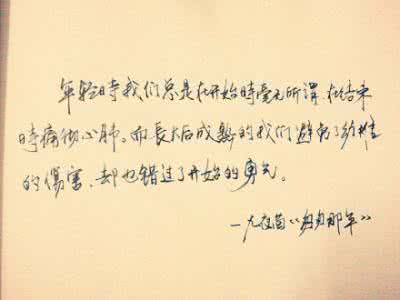 年轻时我们总是在开始時毫无所谓,在结束
時痛彻心肺。而長大后成熟的我们避免了幼稚
的傷害,却也错过了开始的勇气。
—九夜茴《匆匆那年》